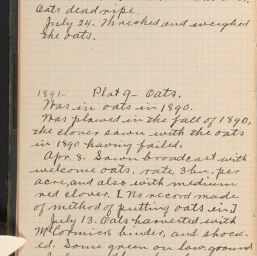 Oats dead ripe.
July 24. Thrashed and weighed
the oats.
1891- Plat 9- Oats.
Was in oats in 1890.
Was plowed in the fall of 1890,
the clover sown with the oats
in 1890 having failed.
Apr. 8. Sown broadcast with
welcome oats. rate 3 bu. per
acre, and also with medium
red clover. [No record made
of method of putting oats in]
July 13. Oats harvested with
McCormick binder, and shock-
ed. Some green on low ground